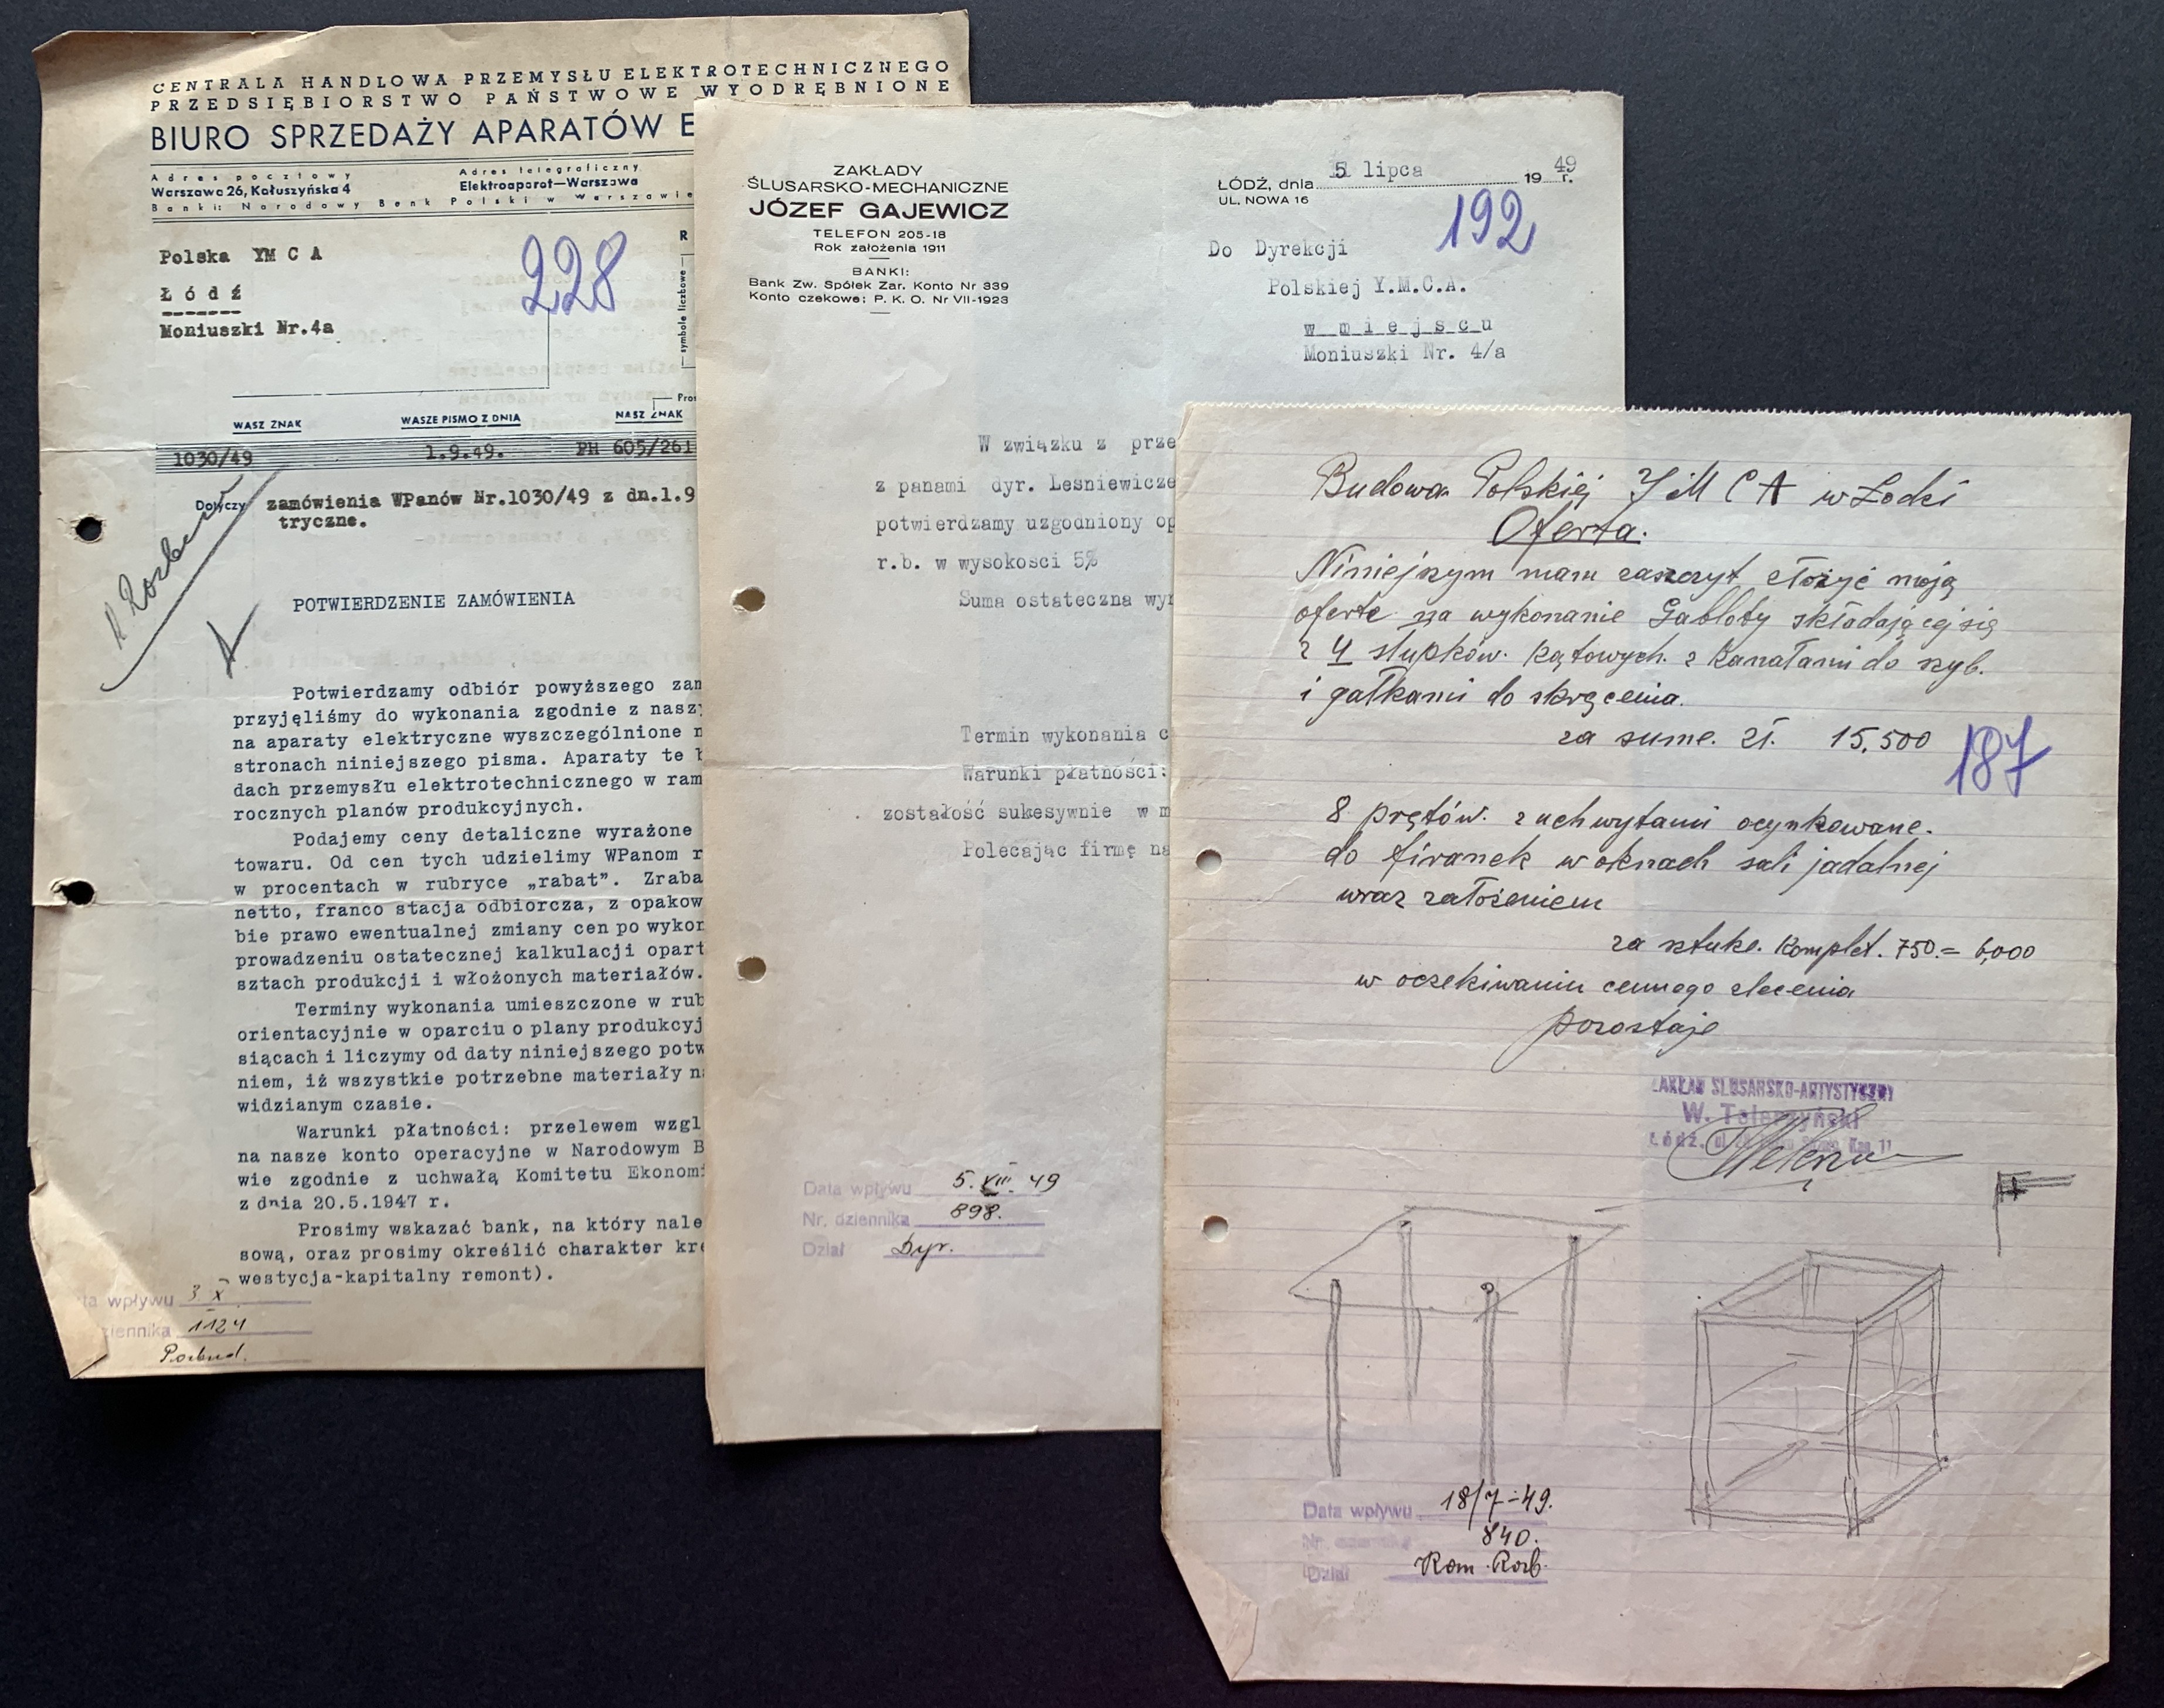 CENTRALA HANDLOWA PRZEMYSŁU ELEKTROTECHNICZNEGO
PRZEDSIĘBIORSTWO PAŃSTWOWE WYODRĘBNIONE
BIURO SPRZEDAŻY APARATÓW E
Adres pocztowy
Warszawa 26, Kałuszyńska 4
Adres telegraficzny
Elektroaparat—Warszawa
Banki: Narodowy Bank Polski w Warszawie
Polska YM C A
Łódź
Moniuszki Nr.4a
228
R
symbole liczbowe
Pros
WASZ ZNAK
WASZE PISMO Z DNIA
NASZ ZNAK
1030/49
1.9.49.
PH 605/261
Dotyczy zamówienia WPanów Nr.1030/49 z dn.1.9
tryczne.
POTWIERDZENIE ZAMÓWIENIA
Potwierdzamy odbiór powyższego zam
przyjęliśmy do wykonania zgodnie z naszy
na aparaty elektryczne wyszczególnione n
stronach niniejszego pisma. Aparaty te b
dach przemysłu elektrotechnicznego w ram
rocznych planów produkcyjnych.
Podajemy ceny detaliczne wyrażone
towaru. Od cen tych udzielimy WPanom r
w procentach w rubryce „rabat”. Zraba
netto, franco stacja odbiorcza, z opakow
bie prawo ewentualnej zmiany cen po wykon
prowadzeniu ostatecznej kalkulacji opart
sztach produkcji i włożonych materiałów.
Terminy wykonania umieszczone w rub
orientacyjnie w oparciu o plany produkcyj
siącach i liczymy od daty niniejszego potw
niem, iż wszystkie potrzebne materiały na
widzianym czasie.
Warunki płatności: przelewem wzgl
na nasze konto operacyjne w Narodowym B
wie zgodnie z uchwałą Komitetu Ekonomi
z dnia 20.5.1947 r.
Prosimy wskazać bank, na który nale
sową, oraz prosimy określić charakter kre
westycja-kapitalny remont).
ta wpływu 3 X
ziennika 1124
ZAKŁADY
ŚLUSARSKO-MECHANICZNE
JÓZEF GAJEWICZ
TELEFON 205-18
Rok założenia 1911
BANKI:
Bank Zw. Spółek Zar. Konto Nr 339
Konto czekowe: P. K. O. Nr VII-1923
ŁÓDŹ, dnia 5 lipca 1949 r.
UL. NOWA 16
192
Do Dyrekcji
Polskiej Y.M.C.A.
w miejscu
Moniuszki Nr. 4/a
W związku z prze
z panami dyr. Lesniewicze
potwierdzamy uzgodniony op
r.b. w wysokosci 5%
Suma ostateczna wyn
Termin wykonania c
Warunki płatności:
zostałość sukesywnie w m
Polecając firmę na
Data wpływu 5. VIII. 49
Nr. dziennika 898.
Dział Dyr.
Budowa Polskiej YMCA w Łodzi
Oferta.
Niniejszym mam zaszczyt złożyć moją
oferte na wykonanie Gabloty składającej się
z 4 słupków. kątowych. z kanałami do szyb.
i gałkami do skręcenia.
za sume. zł. 15,500
187
8 prętów. z uchwytami ocynkowane.
do firanek w oknach sali jadalnej
wraz założeniem
za sztuke. komplet. 750.= 6,000
w oczekiwaniu cennego zlecenia
pozostaje
ZAKŁAD ŚLUSARSKO-ARTYSTYCZNY
W.
Łódź, ul.
Data wpływu 18/7-49.
840.
Dział Kom. Rozb.